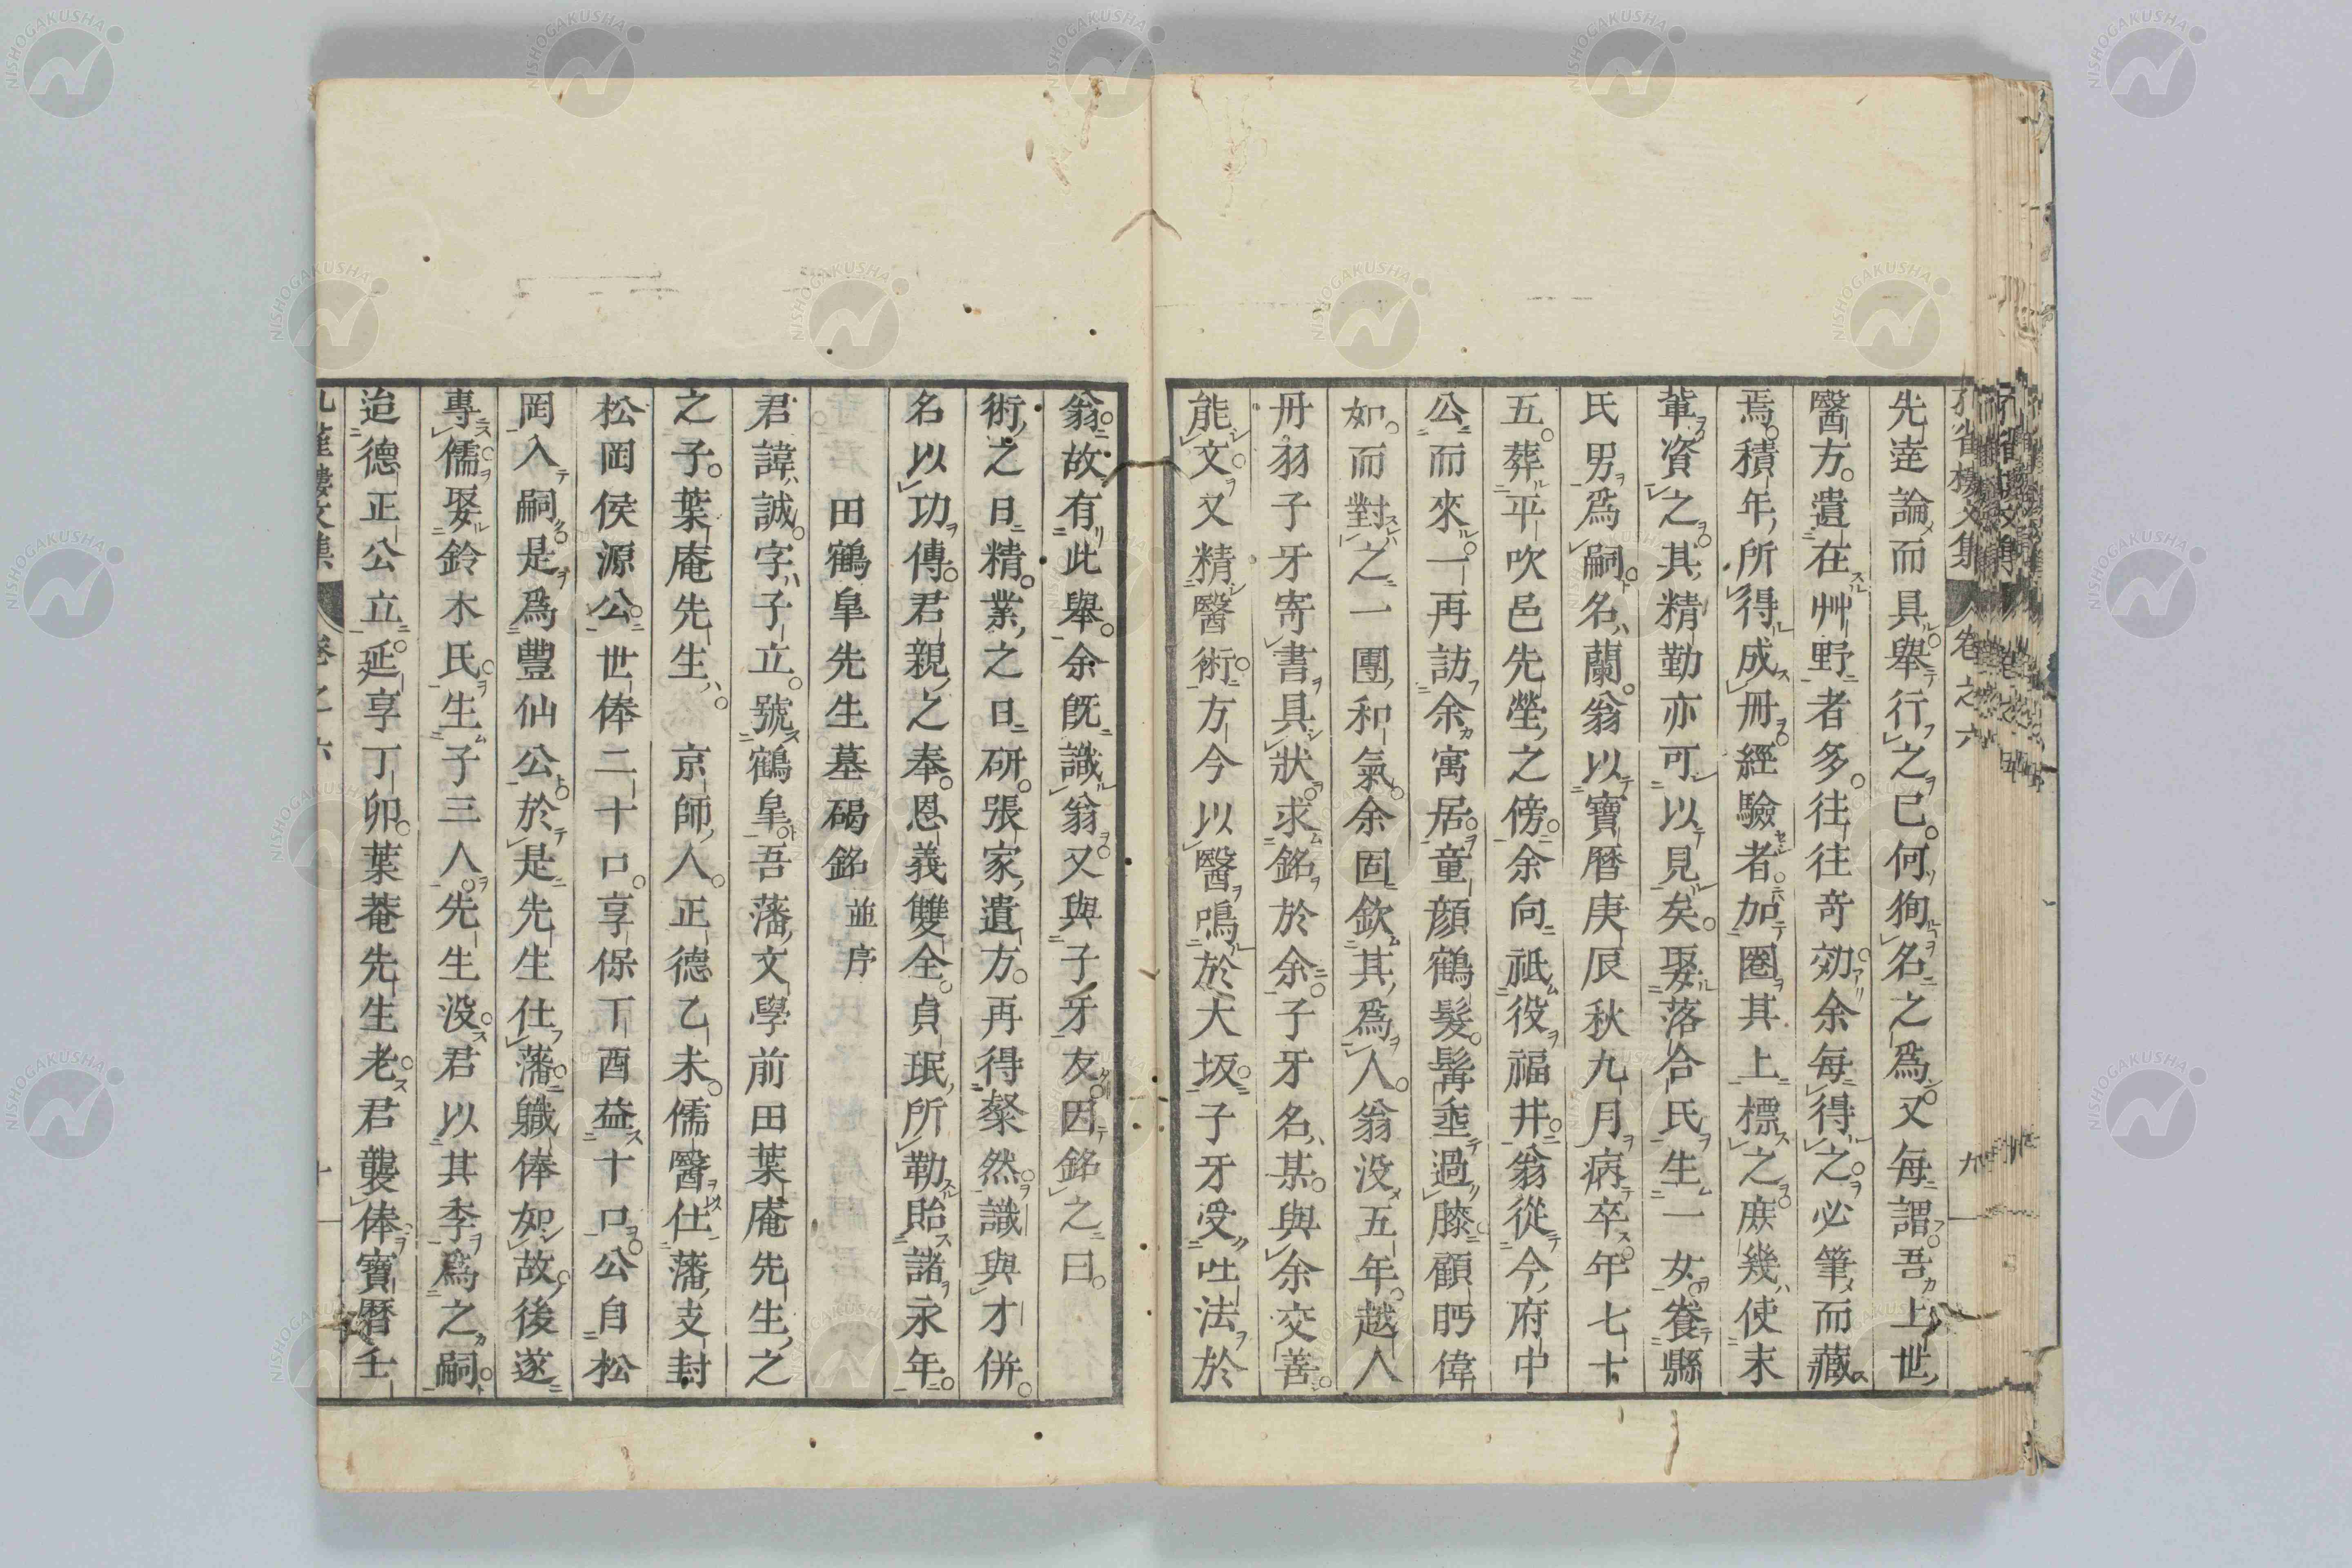 先達論而具舉行之已何徇名之爲又毎謂吾上世
醫方遺在艸野者多往往奇効余毎得之必筆而藏
焉積年所得成册經驗者加圈其上標之庶幾使末
輩資之其精勤亦可以見矣娶落合氏生一女養縣
氏男爲嗣名蘭翁以寶曆庚辰秋九月病卒年七十
五葬平吹邑先塋之傍余向祗役福井翁從今府中
公而來一再訪余寓居童顔鶴髮髯垂過膝顧眄偉
如而對之一團和氣余固欽其爲人翁没五年越人
丹羽子牙寄書具狀求銘於余子牙名某與余交善
能文又精醫術方今以醫鳴於大坂子牙受吐法於
翁故有此舉余旣識翁又與子牙友因銘之曰
術之日精業之日研張家遺方再得粲然識與才併
名以功傳君親之奉恩義雙全貞珉所勒貽諸永年
田鶴皐先生墓碣銘 並序
君諱誠字子立號鶴皐吾藩文學前田葉庵先生之
之子葉庵先生京師人正德乙未儒醫仕藩支封
松岡侯源公世俸二十口享保丁酉益十口公自松
岡入嗣是爲豐仙公於是先生仕藩職俸如故後遂
專儒娶鈴木氏生子三人先生没君以其季爲之嗣
迨德正公立延享丁卯葉菴先生老君襲俸寶曆壬
孔雀樓文集 卷之六 九
孔雀樓文集 卷之六 十
NISHOGAKUSHA